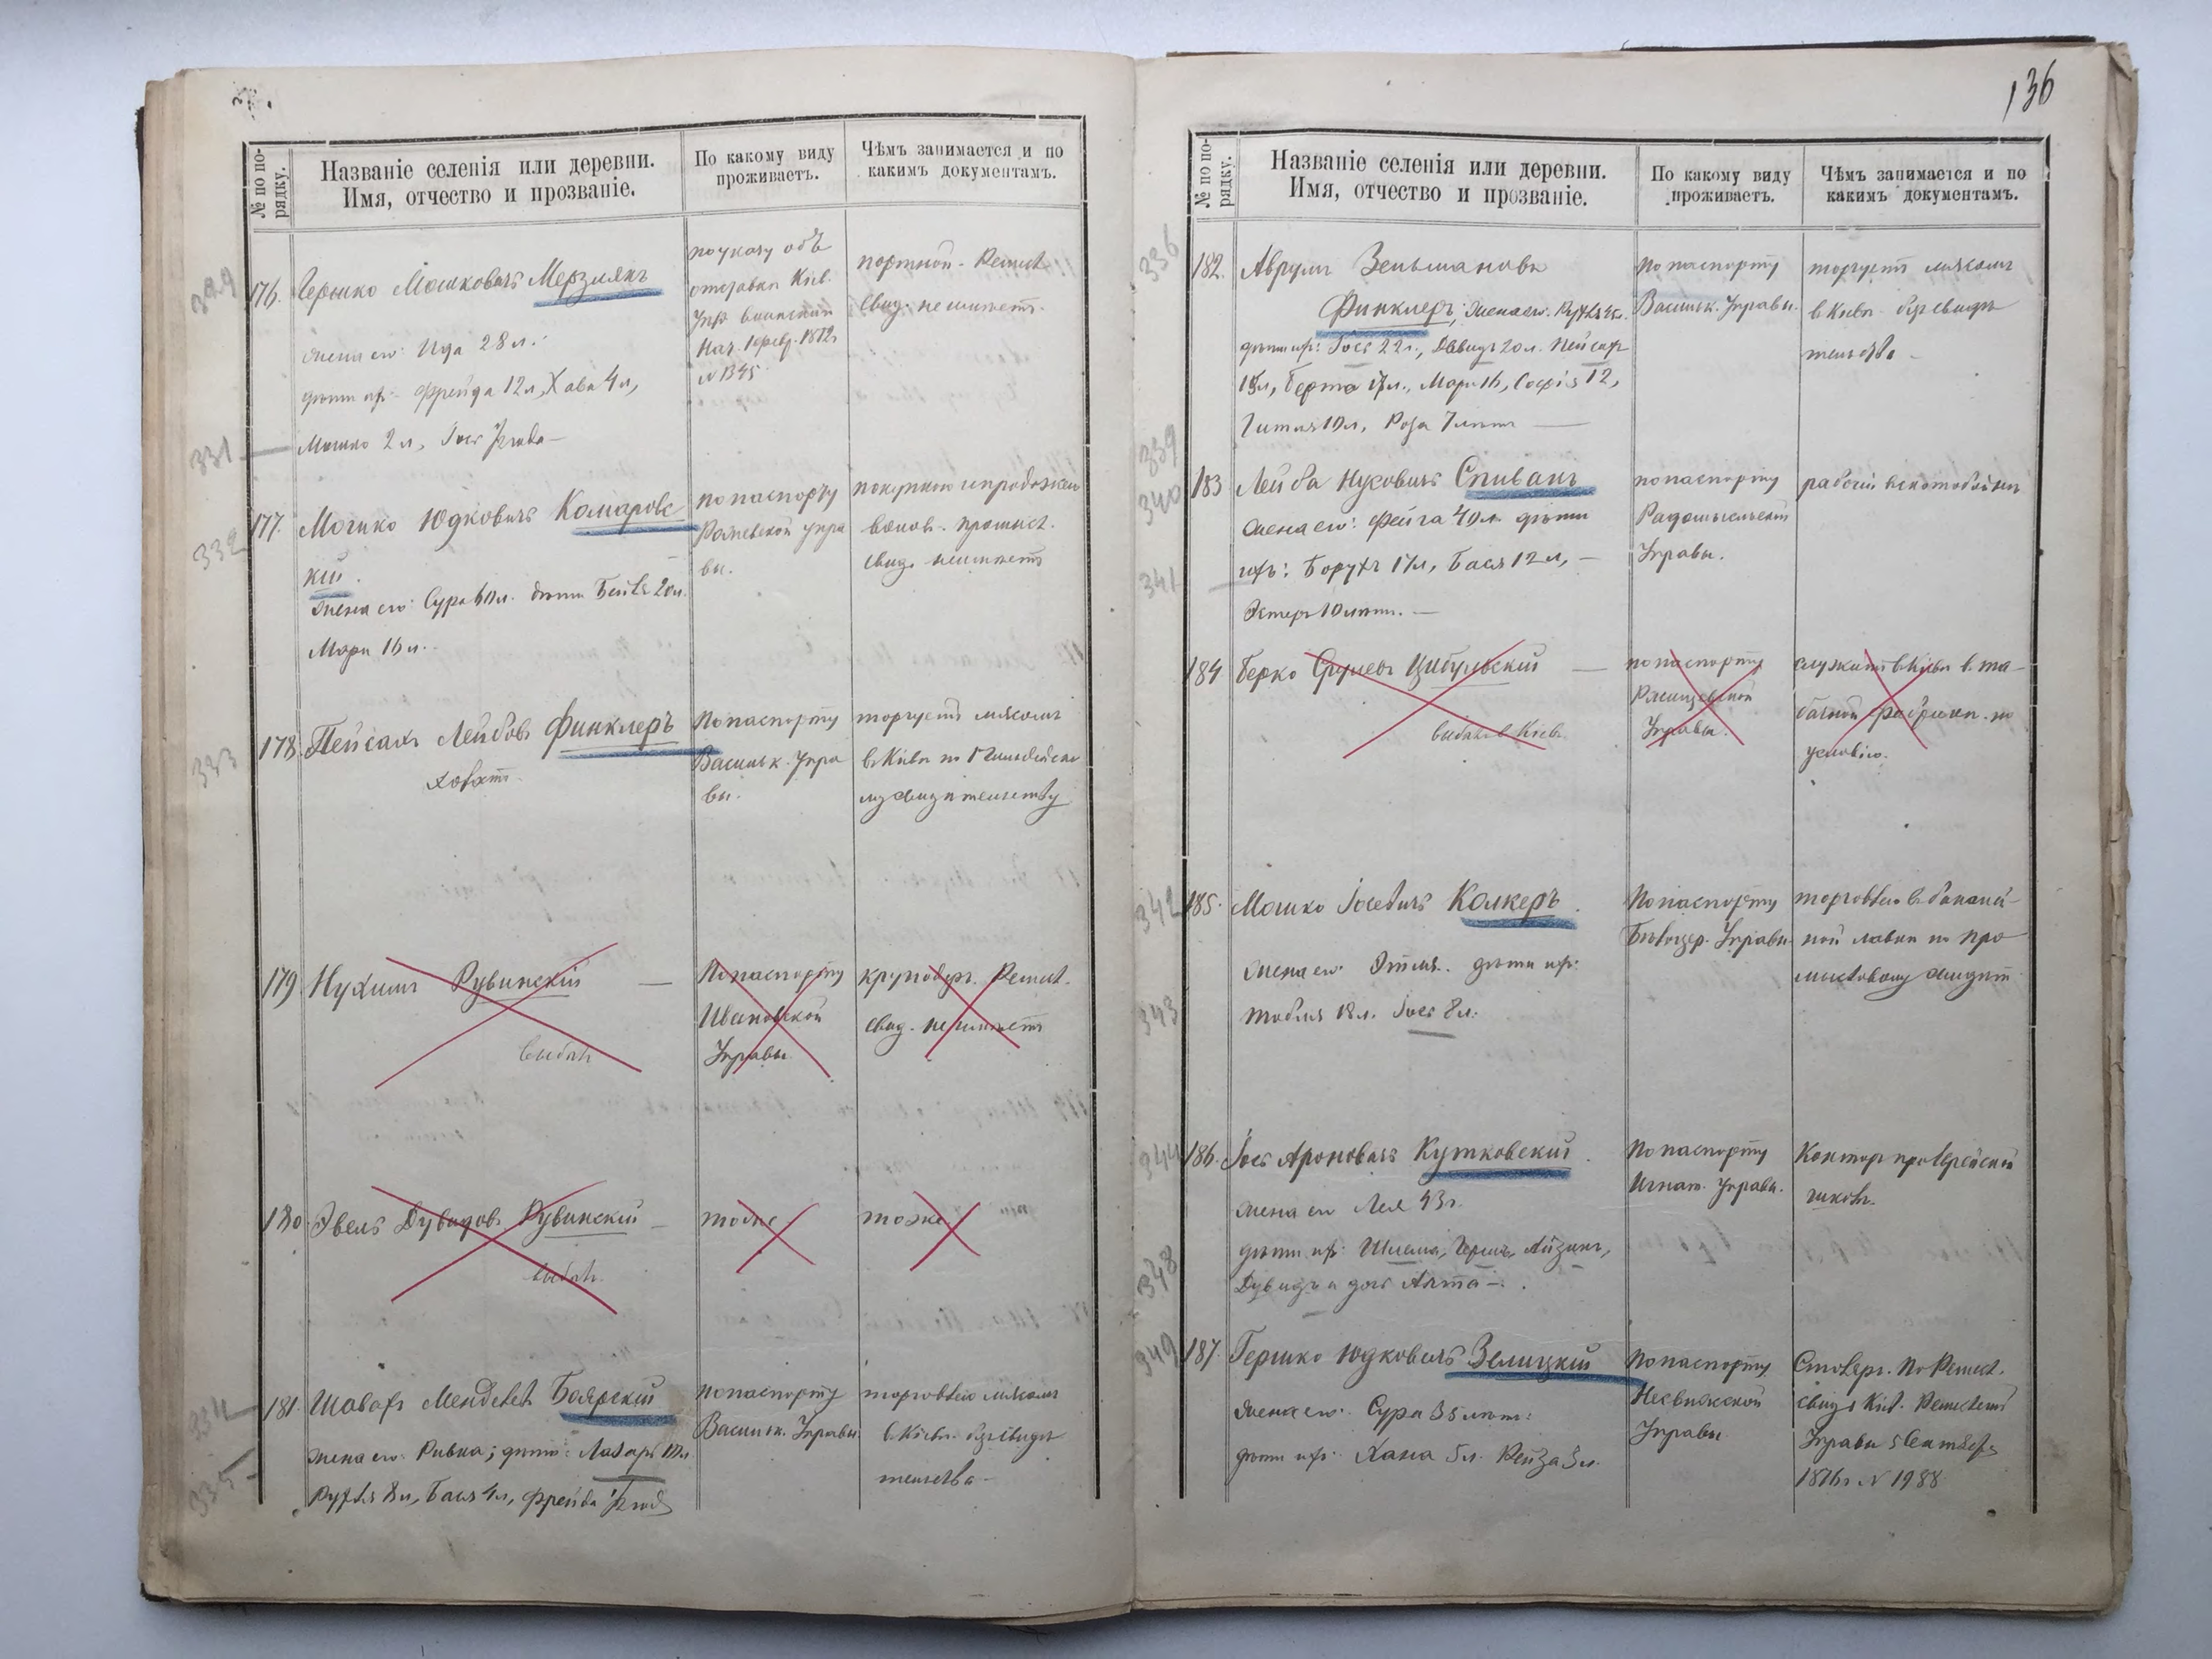 № по по-
рядку.
Названіе селенія или деревни.
Имя, отчество и прозваніе.
По какому виду
проживаетъ.
Чѣмъ занимается и по
какимъ документамъ.
329
176. Гершко Мошковичъ Мерзлякъ
жена его: Ида 28 л.
дѣти их: Фрейда 12 л, Хава 4 л,
331
Мошко 2 л, Іосъ 1/2 года
по указу объ
отставки Кіев.
воинский
Нач. 1 февр. 1872 г.
№ 1345
портной - Ремесл.
свид. не имѣетъ.
332
177. Мошко Юдковичъ Комаровс
кій.
жена его: Сура 40 л. дѣти Бейля 20 л.
Мари 16 л.
по паспорту
Управы.
свид. неимѣетъ
333
178. Пейсахъ Лейбовъ Финклеръ
холост.
По паспорту
Васильк. Упра
вы.
торгуетъ мясомъ
в Кіевѣ по Гильдейско
му свидѣтельству
179 Нухимъ Рувинскій —
выбылъ
По паспорту
Ивановской
Управы.
Ремесл.
свид. не имѣетъ
180 Эвель Дувидовъ Рувинскій —
выбылъ.
тоже
тоже
334
181. Шавахъ Менделевъ Боярскій
335
жена его: Ривка; дѣти: Лазарь 10 л.
Рухля 8 л, Бася 4 л, Фрейда 1/2 года
по паспорту
Васильк. Управы
торговлею мясомъ
в Кіевѣ. без свидѣ
тельства —
136
№ по по-
рядку.
Названіе селенія или деревни.
Имя, отчество и прозваніе.
По какому виду
проживаетъ.
Чѣмъ занимается и по
какимъ документамъ.
336
182. Аврумъ Зельмановъ
Финклеръ; жена его: Рухля
дѣти их: Іосъ 22 г., Давидъ 20 л. Пейсах
339
Берта 17 л., Мари 16, Софія 12,
Гитля 10 л, Роза 7 лѣтъ —
по паспорту
Васильк. Управы.
торгуетъ мясомъ
в Кіевѣ без свидѣ
тельства —
340
183 Лейба Нуховичъ Спивакъ
жена его: Фейга 40 л. дѣти
341
ихъ: Борухъ 17 л, Бася 12 л, —
Эстеръ 10 лѣтъ. —
по паспорту
Радомысльской
Управы.
рабочій
184 Берко Срулевъ Цибулевскій —
выбылъ в Кіевъ
по паспорту
Управы.
служитъ в Кіевѣ в та-
бачной фабрикѣ по
условію.
342
185. Мошко Іосевичъ Колкеръ.
жена его: Этля. дѣти их:
343
Тобля 18 л. Іосъ 8 л.
По паспорту
Бѣлоцер. Управы
торговлею в бакалѣй-
ной лавки по про
мысловому свидѣт.
344
186. Іосъ Ароновичъ Кутковскій.
жена его Лея 43 г.
дѣти их: Шлема, Герш, Айзикъ,
348
Дувидъ и дочь Алта —.
По паспорту
Игнат. Управы.
349
187. Гершко Юдковичъ Зелицкій
жена его: Сура 35 лѣтъ:
дѣти их: Хана 5 л. Рейза 3 л.
По паспорту
Несвижской
Управы
Столяръ. По Ремесл.
свид. Кіев. Ремеслен.
Управы 5 Сентября
1876 г № 1988